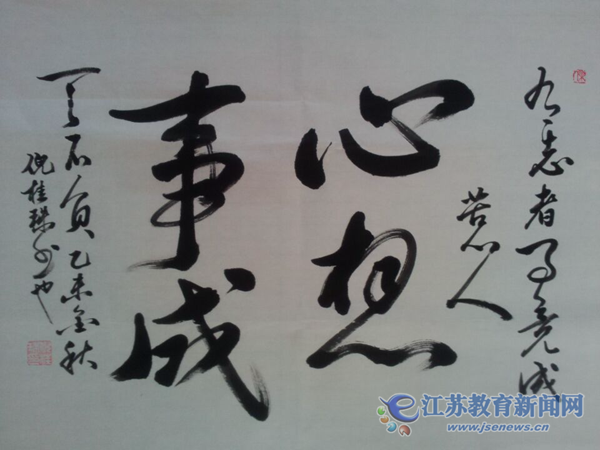 有志者事竟成
苦心人
心想
事成
天不负乙未金秋
倪桂
江苏教育新闻网
www.jsenews.cn